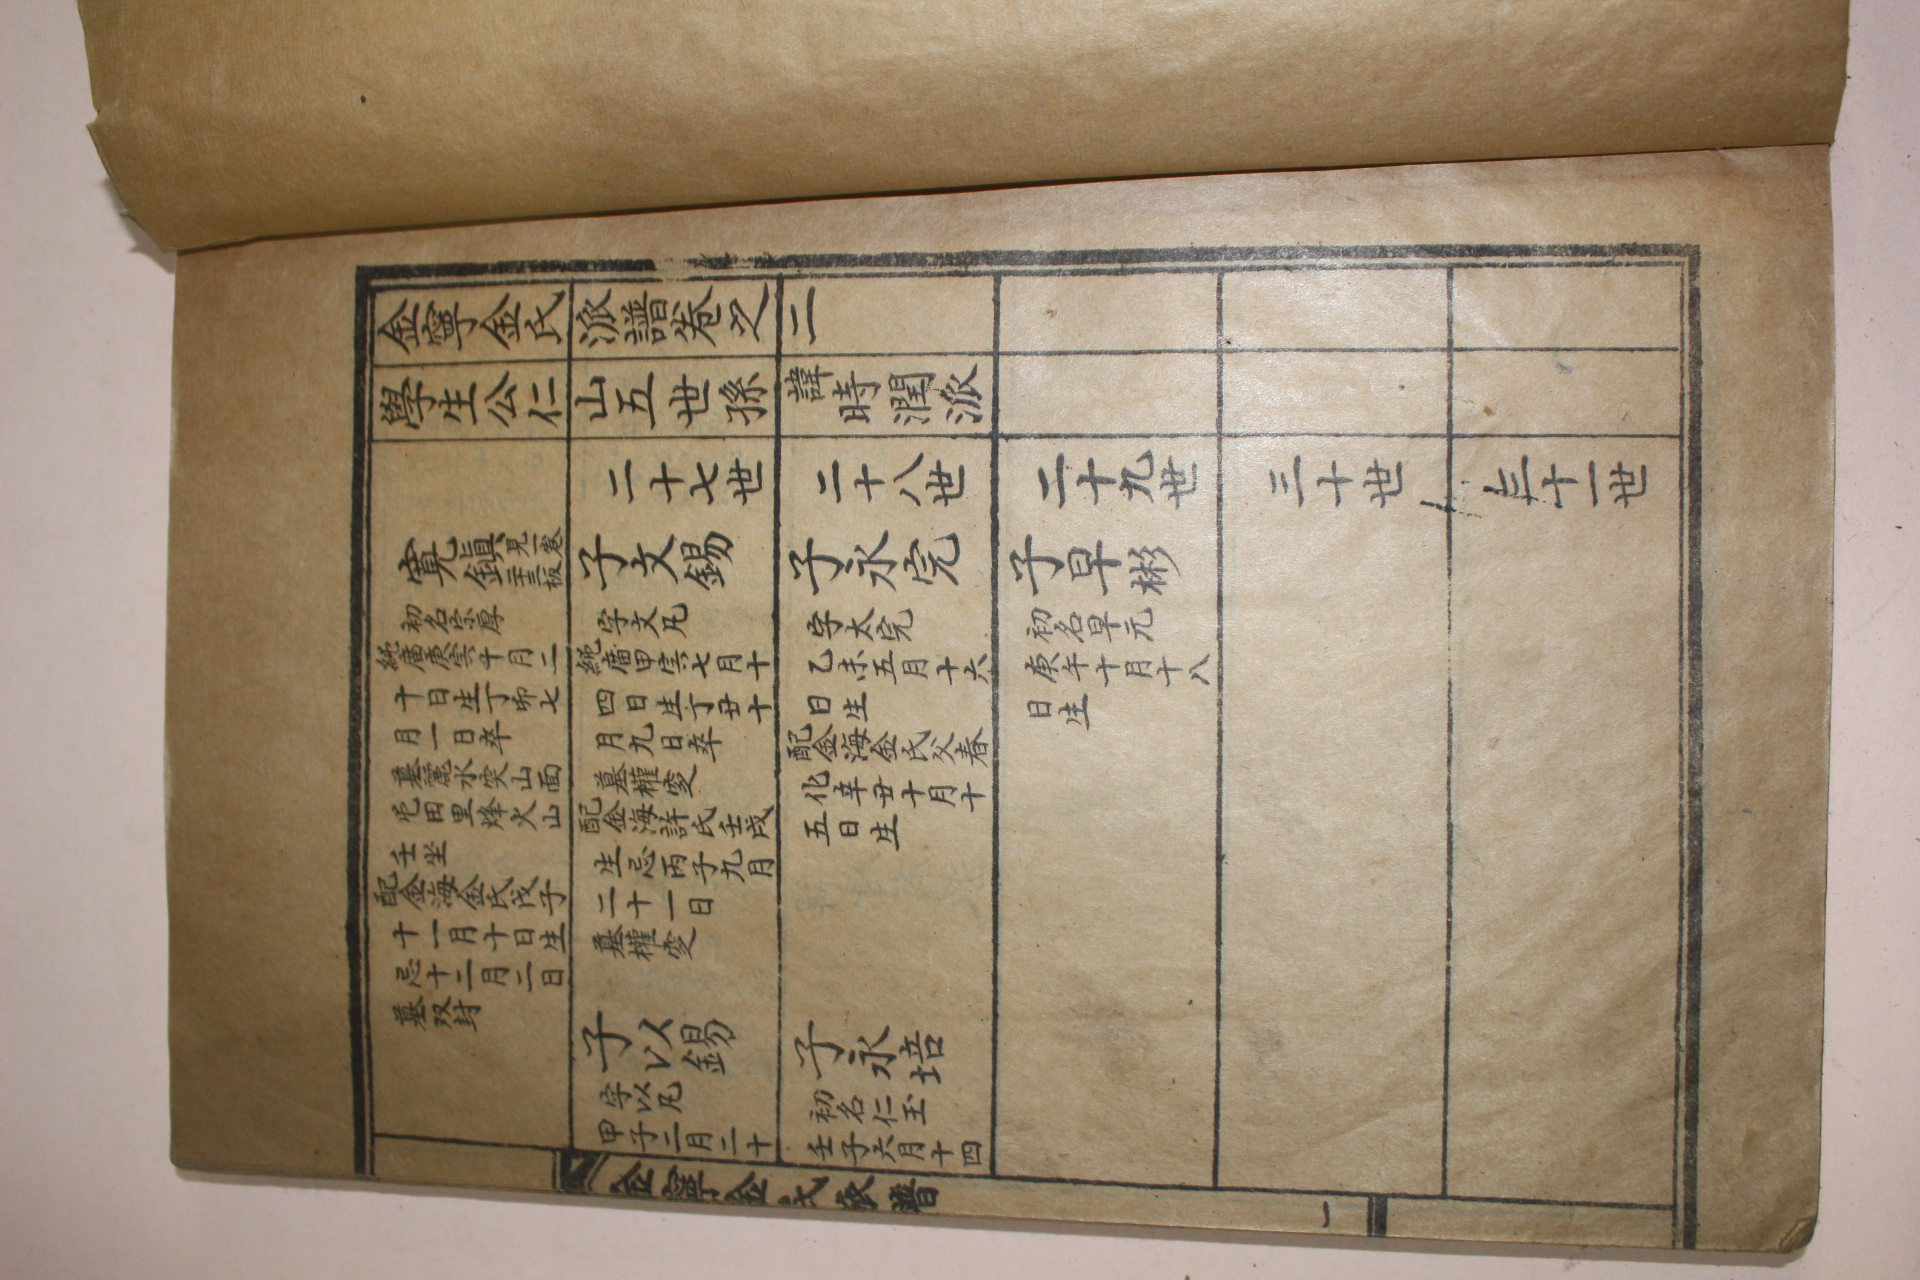 金寧金氏派譜卷之二
學生公仁山五世孫諱時潤派
二十七世
二十八世
二十九世
三十世
三十一世
寬鎭見一卷
二十三板
初名宗厚
純廟庚寅十月二
十日生丁卯七
月一日卒
墓麗水突山面
屯田里烽火山
壬坐
配金海金氏戊子
十一月十日生
忌十二月二日
墓双封
子文錫
字文凡
純廟甲寅七月十
四日生丁丑十
月九日卒
墓權窆
配金海許氏壬戌
生忌丙子九月
二十一日
墓權窆
子以錫
字以凡
甲子二月二十
子永完
字太完
乙未五月十六
日生
配金海金氏父春
化辛丑十月十
五日生
子永培
初名仁玉
壬子六月十四
子早彬
初名早元
庚午十月十八
日生
金寧金氏派譜
一